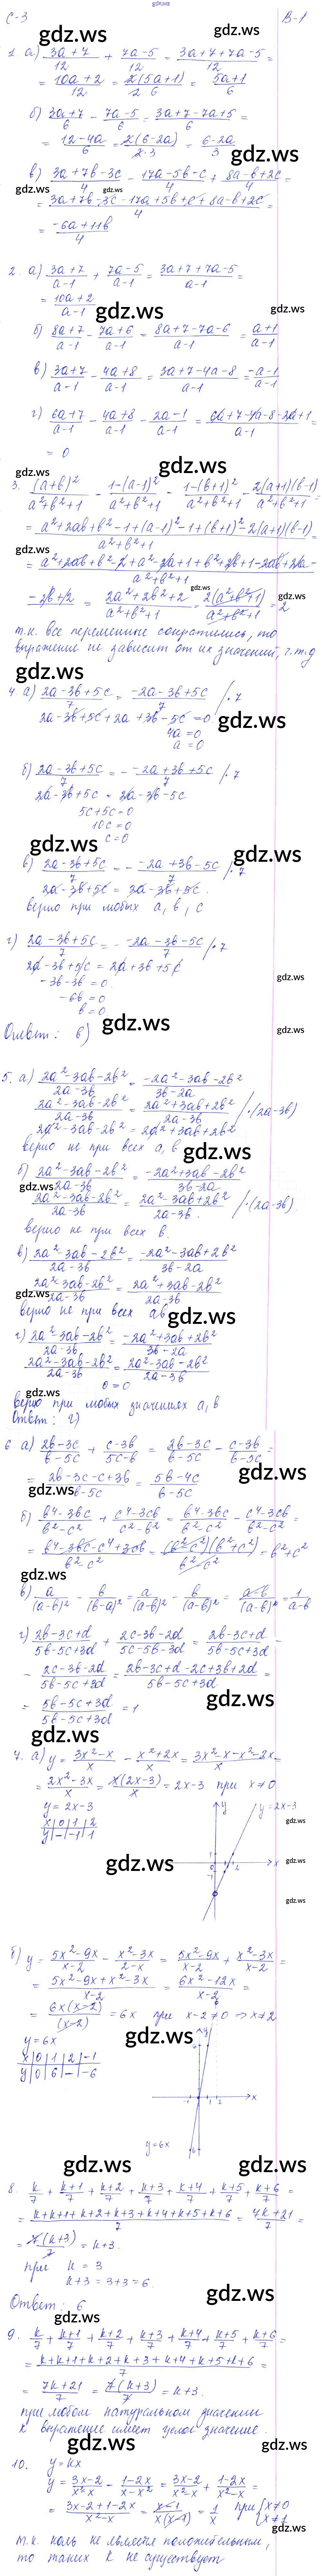 gdz.ws
С-3 В-1
gdz.ws
1. а) (3a+7)/12 + (7a-5)/12 = (3a+7+7a-5)/12 =
= (10a+2)/12 = 2(5a+1)/(2·6) = (5a+1)/6
б) (3a+7)/6 - (7a-5)/6 = (3a+7-7a+5)/6 =
= (12-4a)/6 = 2(6-2a)/(2·3) = (6-2a)/3
gdz.ws
в) (3a+7b-3c)/4 - (17a-5b-c)/4 + (8a-b+2c)/4 =
gdz.ws gdz.ws
= (3a+7b-3c-17a+5b+c+8a-b+2c)/4 =
= (-6a+11b)/4
gdz.ws
2. а) (3a+7)/(a-1) + (7a-5)/(a-1) = (3a+7+7a-5)/(a-1) =
= (10a+2)/(a-1)
gdz.ws gdz.ws
б) (8a+7)/(a-1) - (7a+6)/(a-1) = (8a+7-7a-6)/(a-1) = (a+1)/(a-1)
в) (3a+7)/(a-1) - (4a+8)/(a-1) = (3a+7-4a-8)/(a-1) = (-a-1)/(a-1)
gdz.ws
г) (6a+7)/(a-1) - (4a+8)/(a-1) - (2a-1)/(a-1) = (6a+7-4a-8-2a+1)/(a-1) =
= 0
gdz.ws
3. (a+b)²/(a²+b²+1) - (1-(a-1)²)/(a²+b²+1) - (1-(b+1)²)/(a²+b²+1) - 2(a+1)(b-1)/(a²+b²+1) =
gdz.ws
= (a²+2ab+b²-1+(a-1)²-1+(b+1)²-2(a+1)(b-1))/(a²+b²+1)
gdz.ws
= (a²+2ab+b²-2+a²-2a+1+b²+2b+1-2ab+2a-
gdz.ws
-2b+2)/(a²+b²+1) = (2a²+2b²+2)/(a²+b²+1) = 2(a²+b²+1)/(a²+b²+1) = 2
gdz.ws
т.к. все переменные сократились, то
выражение не зависит от их значений, ч.т.д
gdz.ws
4 а) (2a-3b+5c)/7 = (-2a-3b+5c)/7 /·7
2a-3b+5c+2a+3b-5c=0
gdz.ws
4a=0
a=0
б) (2a-3b+5c)/7 = -(-2a+3b+5c)/7 /·7
2a-3b+5c = 2a-3b-5c
5c+5c=0
10c=0
c=0
gdz.ws gdz.ws
в) (2a-3b+5c)/7 = -(-2a+3b-5c)/7 /·7
2a-3b+5c = 2a-3b+5c.
верно при любых a, b, c
gdz.ws
г) (2a-3b+5c)/7 = -(-2a-3b-5c)/7 /·7
2a-3b+5c = 2a+3b+5c
gdz.ws
-3b-3b=0
-6b=0
b=0
gdz.ws gdz.ws
Ответ: в)
5. а) (2a²-3ab-2b²)/(2a-3b) = (-2a²-3ab-2b²)/(3b-2a)
(2a²-3ab-2b²)/(2a-3b) = (2a²+3ab+2b²)/(2a-3b) /·(2a-3b)
2a²-3ab-2b² = 2a²+3ab+2b²
верно не при всех a, b
gdz.ws
б) (2a²-3ab-2b²)/(2a-3b) = (-2a²+3ab-2b²)/(3b-2a)
gdz.ws
(2a²-3ab-2b²)/(2a-3b) = (2a²-3ab+2b²)/(2a-3b). /·(2a-3b).
верно не при всех b.
в) (2a²-3ab-2b²)/(2a-3b) = (-2a²-3ab+2b²)/(3b-2a)
gdz.ws
(2a²-3ab-2b²)/(2a-3b) = (2a²+3ab-2b²)/(2a-3b)
верно не при всех ab
gdz.ws
г) (2a²-3ab-2b²)/(2a-3b) = (-2a²+3ab+2b²)/(3b-2a)
(2a²-3ab-2b²)/(2a-3b) = (2a²-3ab-2b²)/(2a-3b)
0=0
gdz.ws
верно при любых значениях a, b
Ответ: г)
6. а) (2b-3c)/(b-5c) + (c-3b)/(5c-b) = (2b-3c)/(b-5c) - (c-3b)/(b-5c) =
gdz.ws gdz.ws
= (2b-3c-c+3b)/(b-5c) = (5b-4c)/(b-5c)
б) (b⁴-3bc)/(b²-c²) + (c⁴-3cb)/(c²-b²) = (b⁴-3bc)/(b²-c²) - (c⁴-3cb)/(b²-c²) =
= (b⁴-3bc-c⁴+3cb)/(b²-c²) = (b²-c²)(b²+c²)/(b²-c²) = b²+c²
gdz.ws
в) a/(a-b)² - b/(b-a)² = a/(a-b)² - b/(a-b)² = (a-b)/(a-b)² = 1/(a-b)
г) (2b-3c+d)/(5b-5c+3d) + (2c-3b-2d)/(5c-5b-3d) = (2b-3c+d)/(5b-5c+3d) -
- (2c-3b-2d)/(5b-5c+3d) = (2b-3c+d-2c+3b+2d)/(5b-5c+3d) =
gdz.ws
= (5b-5c+3d)/(5b-5c+3d) = 1
gdz.ws
7. а) y = (3x²-x)/x - (x²+2x)/x = (3x²-x-x²-2x)/x =
= (2x²-3x)/x = x(2x-3)/x = 2x-3 при x≠0
y=2x-3
x|0|1|2
y|-|-1|1
y y=2x-3
gdz.ws
gdz.ws
x
gdz.ws
gdz.ws
б) y = (5x²-9x)/(x-2) - (x²-3x)/(2-x) = (5x²-9x)/(x-2) + (x²-3x)/(x-2) =
= (5x²-9x+x²-3x)/(x-2) = (6x²-12x)/(x-2) =
= 6x(x-2)/(x-2) = 6x при x-2≠0 ⇒ x≠2
gdz.ws
y=6x
x|0|1|2|-1
y|0|6|-|-6
y
x
y=6x
gdz.ws gdz.ws
8. k/7 + (k+1)/7 + (k+2)/7 + (k+3)/7 + (k+4)/7 + (k+5)/7 + (k+6)/7 =
= (k+k+1+k+2+k+3+k+4+k+5+k+6)/7 = (7k+21)/7 =
= 7(k+3)/7 = k+3.
при k=3
k+3=3+3=6.
gdz.ws
Ответ: 6
gdz.ws
9. k/7 + (k+1)/7 + (k+2)/7 + (k+3)/7 + (k+4)/7 + (k+5)/7 + (k+6)/7 =
= (k+k+1+k+2+k+3+k+4+k+5+k+6)/7 =
= (7k+21)/7 = 7(k+3)/7 = k+3.
при любом натуральном значении
k выражение имеет целое значение.
gdz.ws gdz.ws
10. y=kx
y = (3x-2)/(x²-x) - (1-2x)/(x-x²) = (3x-2)/(x²-x) + (1-2x)/(x²-x) =
gdz.ws
= (3x-2+1-2x)/(x²-x) = (x-1)/(x(x-1)) = 1/x при {x≠0 x≠1
т.к. коль не является положительным,
gdz.ws
то таких k не существует